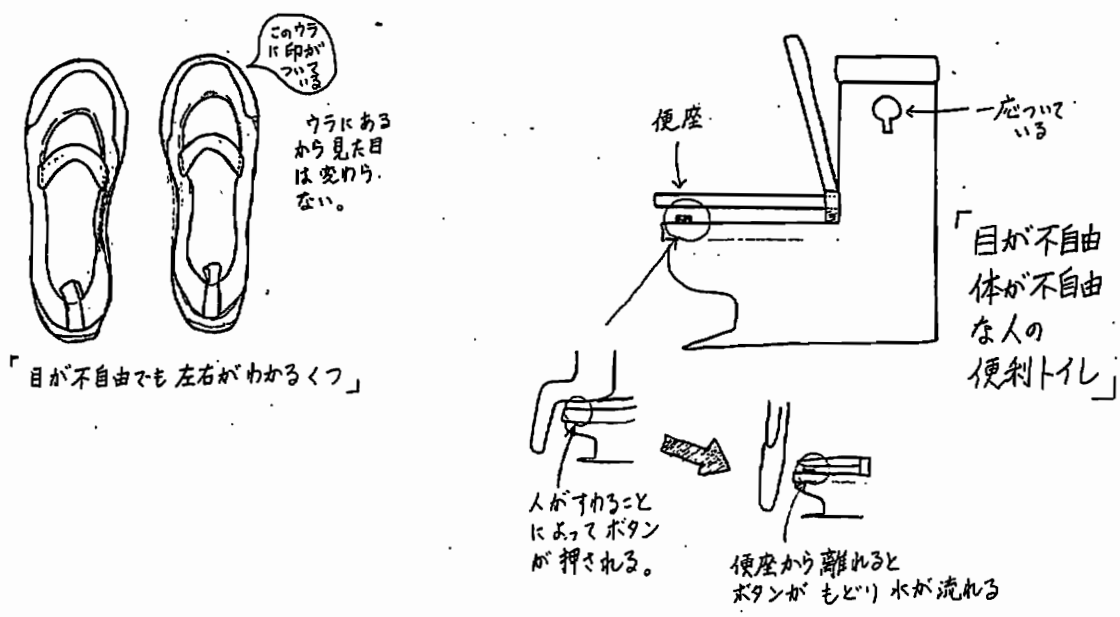 このウラ
に印が
ついて
いる
ウラにある
から見た目
は変わら
ない。
「目が不自由でも左右がわかるくつ」
便座
一応ついて
いる
「目が不自由
体が不自由
な人の
便利トイレ」
人がすわること
によってボタン
が押される。
便座から離れると
ボタンがもどり水が流れる